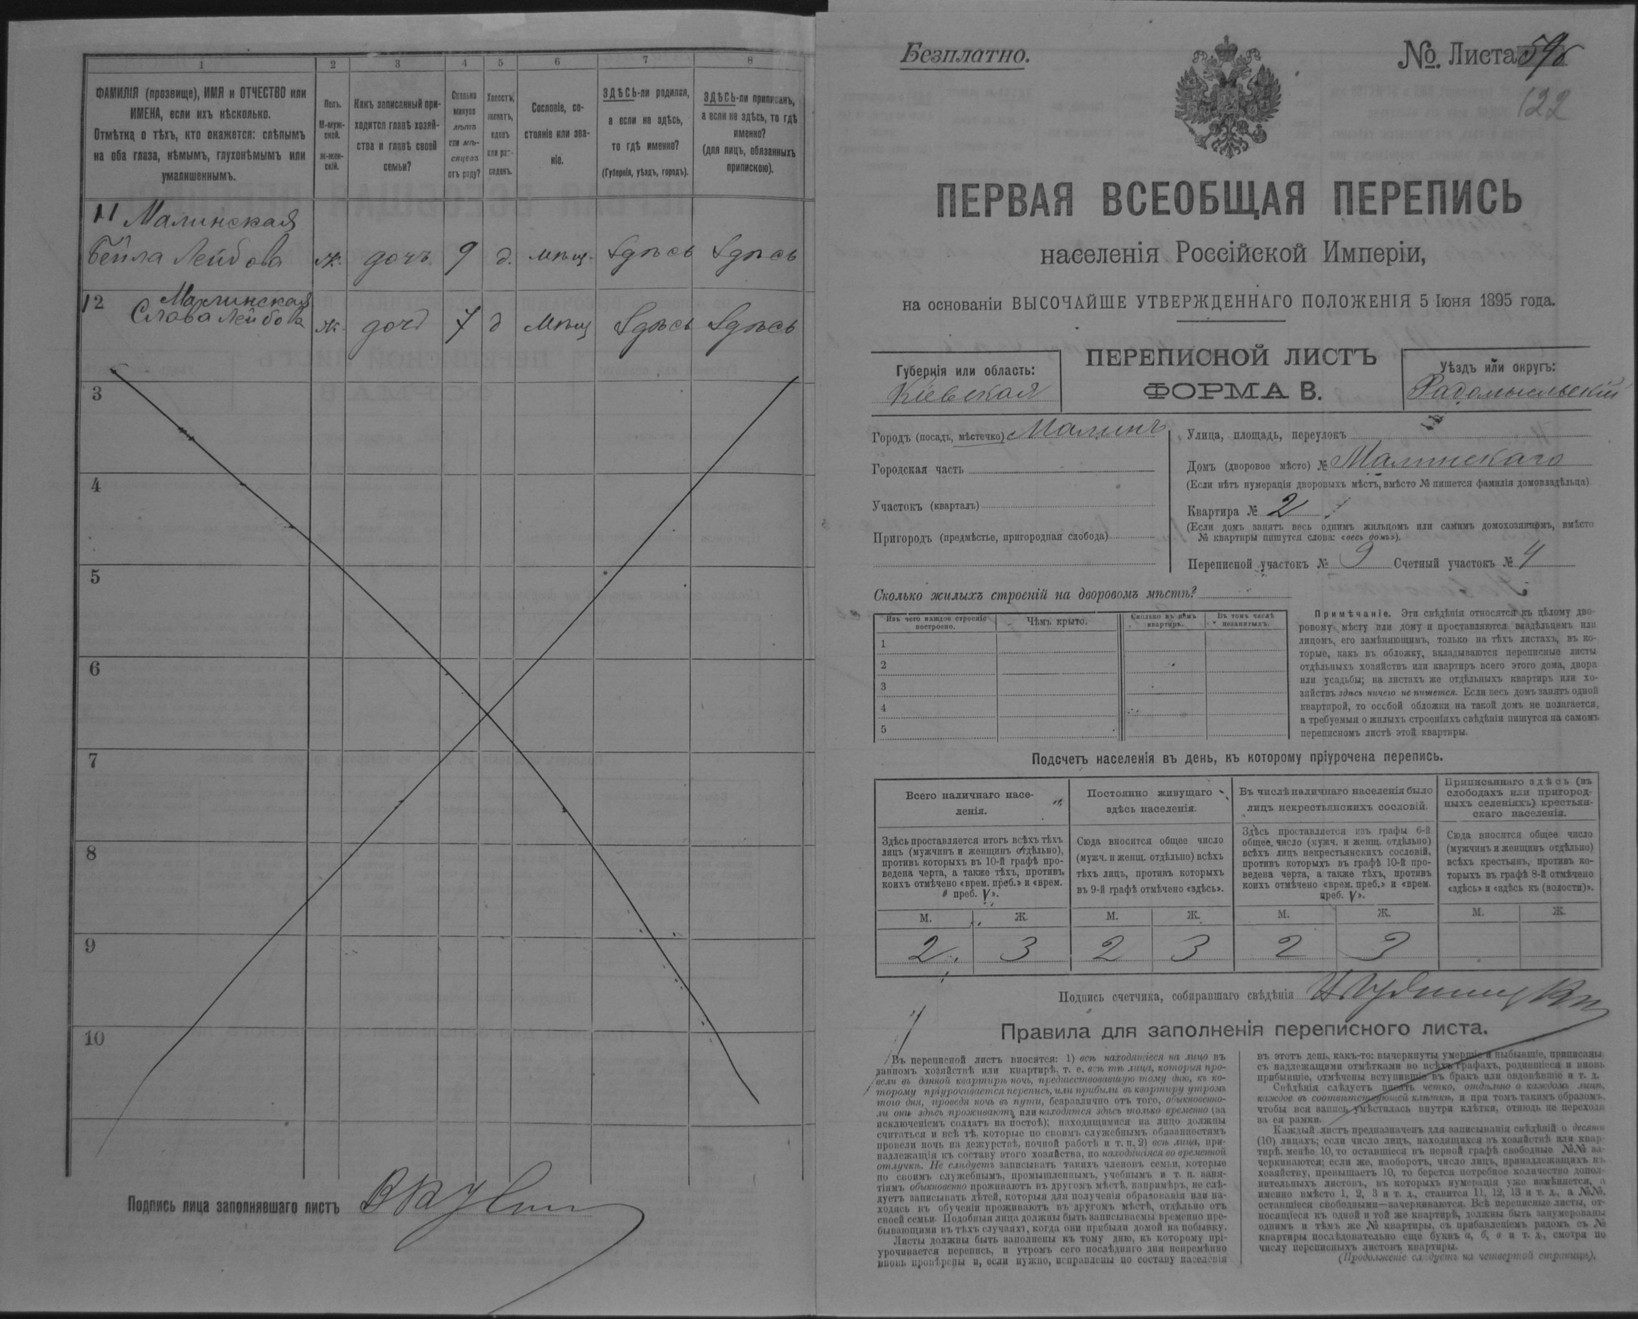 1
2
3
4
5
6
7
8
ФАМИЛІЯ (прозвище), ИМЯ и ОТЧЕСТВО или
ИМЕНА, если ихъ нѣсколько.
Отмѣтка о тѣхъ, кто окажется: слѣпымъ
на оба глаза, нѣмымъ, глухонѣмымъ или
умалишеннымъ.
Полъ.
М-муж-
ской.
ж-жен-
скій.
Какъ записанный при-
ходится главѣ хозяй-
ства и главѣ своей
семьи?
Сколько
минуло
лѣтъ
или мѣ-
сяцевъ
отъ роду?
Холостъ,
женатъ,
вдовъ
или раз-
веденъ.
Сословіе, со-
стояніе или зва-
ніе.
ЗДѢСЬ-ли родился,
а если не здѣсь,
то гдѣ именно?
(Губернія, уѣздъ, городъ).
ЗДѢСЬ-ли приписанъ,
а если не здѣсь, то гдѣ
именно?
(для лицъ, обязанныхъ
припискою).
11 Малинская
Бейла Лейбова ж. дочь 9 д. мѣщ. Здѣсь Здѣсь
12 Малинская
Слава Лейбова ж. дочь 7 д Мѣщ Здѣсь Здѣсь
3
4
5
6
7
8
9
10
Подпись лица заполнявшаго листъ
Безплатно.
№. Листа
122
ПЕРВАЯ ВСЕОБЩАЯ ПЕРЕПИСЬ
населенія Россійской Имперіи,
на основаніи ВЫСОЧАЙШЕ УТВЕРЖДЕННАГО ПОЛОЖЕНІЯ 5 Іюня 1895 года.
Губернія или область:
Кіевская
ПЕРЕПИСНОЙ ЛИСТЪ
ФОРМА В.
Уѣздъ или округъ:
Радомысльскій
Городъ (посадъ, мѣстечко) Малинъ
Городская часть
Участокъ (кварталъ)
Пригородъ (предмѣстье, пригородная слобода)
Улица, площадь, переулокъ
Домъ (дворовое мѣсто) № Малинскаго
(Если нѣтъ нумераціи дворовыхъ мѣстъ, вмѣсто № пишется фамилія домовладѣльца)
Квартира № 2
(Если домъ занятъ весь однимъ жильцомъ или самимъ домохозяиномъ, вмѣсто
№ квартиры пишутся слова: «весь домъ»).
Переписной участокъ № 9 Счетный участокъ № 4
Сколько жилыхъ строеній на дворовомъ мѣстѣ?
Изъ чего каждое строеніе
построено.
Чѣмъ крыто.
Сколько въ немъ
квартиръ.
Въ томъ числѣ
незанятыхъ.
1
2
3
4
5
Примѣчаніе. Эти свѣдѣнія относятся къ цѣлому дво-
ровому мѣсту или дому и проставляются владѣльцемъ или
лицомъ, его замѣняющимъ, только на тѣхъ листахъ, въ ко-
торые, какъ въ обложку, вкладываются переписные листы
отдѣльныхъ хозяйствъ или квартиръ всего этого дома, двора
или усадьбы; на листахъ же отдѣльныхъ квартиръ или хо-
зяйствъ здѣсь ничего не пишется. Если весь домъ занятъ одной
квартирой, то особой обложки на такой домъ не полагается,
а требуемыя о жилыхъ строеніяхъ свѣдѣнія пишутся на самомъ
переписномъ листѣ этой квартиры.
Подсчетъ населенія въ день, къ которому пріурочена перепись.
Всего наличнаго насе-
ленія.
Постоянно живущаго
здѣсь населенія.
Въ числѣ наличнаго населенія было
лицъ некрестьянскихъ сословій.
Приписаннаго здѣсь (въ
слободахъ или пригород-
ныхъ селеніяхъ) крестьян-
скаго населенія.
Здѣсь проставляется итогъ всѣхъ тѣхъ
лицъ (мужчинъ и женщинъ отдѣльно),
противъ которыхъ въ 10-й графѣ про-
ведена черта, а также тѣхъ, противъ
коихъ отмѣчено «врем. преб.» и «врем.
преб. V».
Сюда вносится общее число
(мужч. и женщ. отдѣльно) всѣхъ
тѣхъ лицъ, противъ которыхъ
въ 9-й графѣ отмѣчено «здѣсь».
Здѣсь проставляется изъ графы 6-й
общее число (мужч. и женщ. отдѣльно)
всѣхъ лицъ некрестьянскихъ сословій,
противъ которыхъ въ графѣ 10-й про-
ведена черта, а также тѣхъ, противъ
коихъ отмѣчено «врем. преб.» и «врем.
преб. V».
Сюда вносится общее число
(мужчинъ и женщинъ отдѣльно)
всѣхъ крестьянъ, противъ ко-
торыхъ въ графѣ 8-й отмѣчено
«здѣсь» и «здѣсь въ (волости)».
М. Ж. М. Ж. М. Ж. М. Ж.
2 3 2 3 2 3
Подпись счетчика, собиравшаго свѣдѣнія
Правила для заполненія переписного листа.
Въ переписной листъ вносятся: 1) всѣ находящіеся на лицо въ
данномъ хозяйствѣ или квартирѣ, т. е. всѣ тѣ лица, которыя про-
вели въ данной квартирѣ ночь, предшествовавшую тому дню, къ ко-
торому пріурочивается перепись, или прибыли въ квартиру утромъ
того дня, проведя ночь въ пути, безразлично отъ того, обыкновенно-
ли они здѣсь проживаютъ или находятся здѣсь только временно (за
исключеніемъ солдатъ на постоѣ); находящимися на лицо должны
считаться и всѣ тѣ, которые по своимъ служебнымъ обязанностямъ
провели ночь на дежурствѣ, ночной работѣ и т. п. 2) всѣ лица, при-
надлежащія къ составу этого хозяйства, но находящіяся во временной
отлучкѣ. Не слѣдуетъ записывать такихъ членовъ семьи, которые
по своимъ служебнымъ, промышленнымъ, учебнымъ и т. п. заня-
тіямъ обыкновенно проживаютъ въ другомъ мѣстѣ, напримѣръ, не слѣ-
дуетъ записывать дѣтей, которыя для полученія образованія или на-
ходясь въ обученіи проживаютъ въ другомъ мѣстѣ, отдѣльно отъ
своей семьи. Подобныя лица должны быть записываемы временно пре-
бывающими въ тѣхъ случаяхъ, когда они прибыли домой на побывку.
Листы должны быть заполнены къ тому дню, къ которому прі-
урочивается перепись, и утромъ сего послѣдняго дня непремѣнно
вновь провѣрены и, если нужно, исправлены по составу населенія
въ этотъ день, какъ-то: вычеркнуты умершіе и выбывшіе, приписаны
съ надлежащими отмѣтками во всѣхъ графахъ, родившіеся и вновь
прибывшіе, отмѣчены вступившіе въ бракъ или овдовѣвшіе и т. д.
Свѣдѣнія слѣдуетъ писать четко, отдѣльно о каждомъ лицѣ,
каждое въ соотвѣтствующей клѣткѣ, и при томъ такимъ образомъ,
чтобы вся запись умѣстилась внутри клѣтки, отнюдь не переходя
за ея рамки.
Каждый листъ предназначенъ для записыванія свѣдѣній о десяти
(10) лицахъ; если число лицъ, находящихся въ хозяйствѣ или квар-
тирѣ, менѣе 10, то оставшіеся въ первой графѣ свободные №№ за-
черкиваются; если же, наоборотъ, число лицъ, принадлежащихъ къ
хозяйству, превышаетъ 10, то берется потребное количество допол-
нительныхъ листовъ, въ которыхъ нумерація уже измѣняется, а
именно вмѣсто 1, 2, 3 и т. д., ставится 11, 12, 13 и т. д., а №№,
оставшіеся свободными—зачеркиваются. Всѣ переписные листы, от-
носящіеся къ одной и той же квартирѣ, должны быть занумерованы
однимъ и тѣмъ же № квартиры, съ прибавленіемъ рядомъ съ №
квартиры послѣдовательно еще буквъ а, б, в и т. д., смотря по
числу переписныхъ листовъ квартиры.
(Продолженіе слѣдуетъ на четвертой страницѣ).